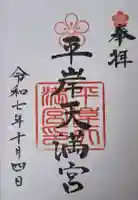 奉拝
平岸天満宮
令和七年十月四日